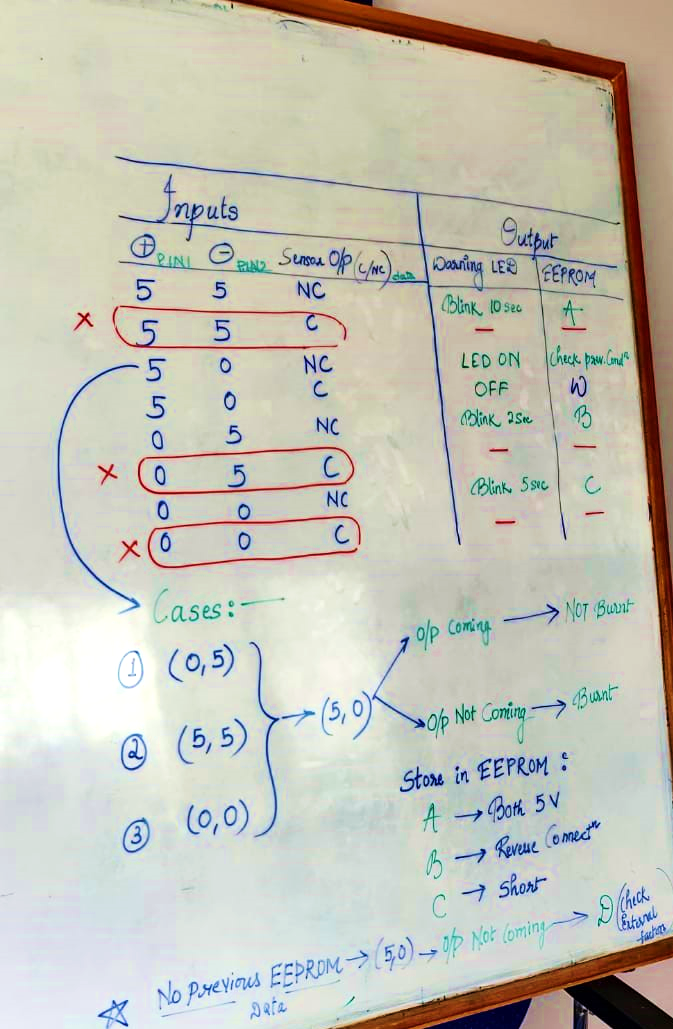 Inputs
Output
⊕ PIN1 ⊖ PIN2 Sensor O/p (C/NC) data Warning LED EEPROM
5 5 NC Blink 10 sec A
× 5 5 C — —
5 0 NC LED ON Check prev. Condⁿ
5 0 C OFF W
0 5 NC Blink 2 sec B
× 0 5 C — —
0 0 NC Blink 5 sec C
× 0 0 C — —
Cases :—
① (0,5)
② (5,5)
③ (0,0)
→ (5,0)
O/p Coming → NOT Burnt
O/p Not Coming → Burnt
Store in EEPROM :
A → Both 5 V
B → Reverse Connectⁿ
C → Short
☆ No previous EEPROM Data → (5,0) → O/p Not Coming → D (Check External factors